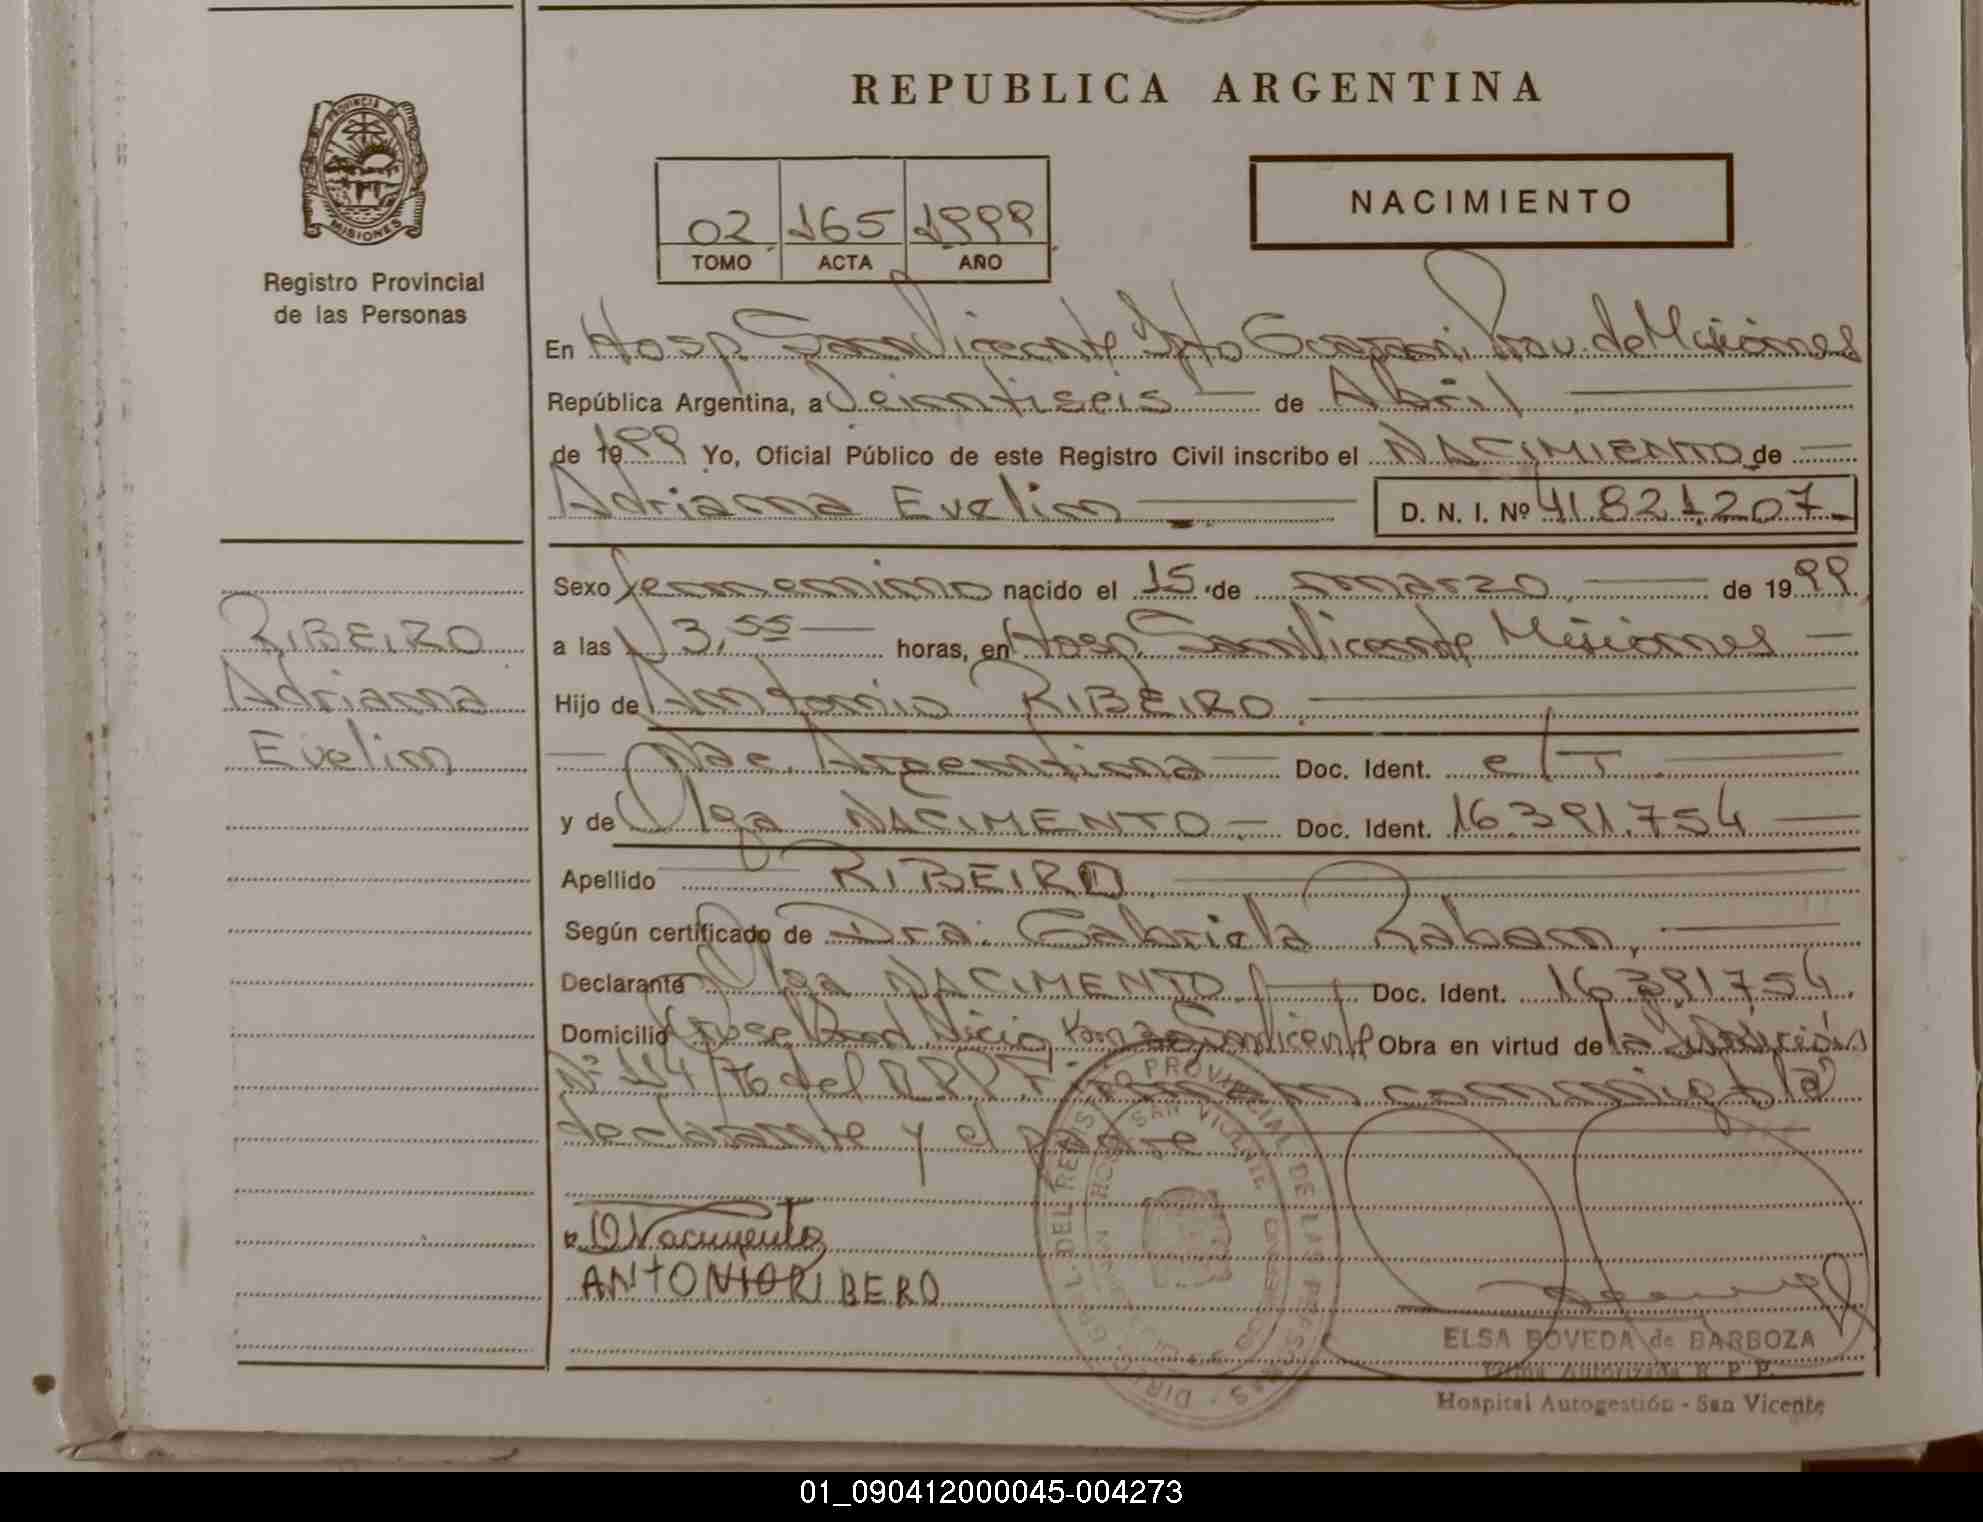 PROVINCIA DE
MISIONES
Registro Provincial
de las Personas
REPUBLICA ARGENTINA
02 165 1999
TOMO ACTA AÑO
NACIMIENTO
En Hosp. San Vicente Dpto Guaraní, Prov. de Misiones
República Argentina, a Veintiseis de Abril
de 1999 Yo, Oficial Público de este Registro Civil inscribo el NACIMIENTO de
Adriana Evelin D. N. I. Nº 41.821.207
Sexo femenino nacido el 15 de marzo de 1999
a las 13,55 horas, en Hosp. San Vicente Misiones
Hijo de Antonio RIBEIRO
Nac. Argentina Doc. Ident. e/T
y de Olga NACIMENTO Doc. Ident. 16.391.754
Apellido RIBEIRO
Según certificado de Dra. Gabriela Raban
Declarante Olga NACIMENTO Doc. Ident. 16391754
Domicilio San Vicente Obra en virtud de la
Nº 114/76 del R.P.P. conmigo la
declarante y el padre
RIBEIRO
Adriana
Evelin
O Nacimento
ANTONIO RIBERO
DIREC. GRAL. DEL REGISTRO PROVINCIAL DE LAS PERSONAS
HOSP. SAN VICENTE
ELSA BOVEDA de BARBOZA
Firma Autorizada R. P. P.
Hospital Autogestión - San Vicente
01_090412000045-004273